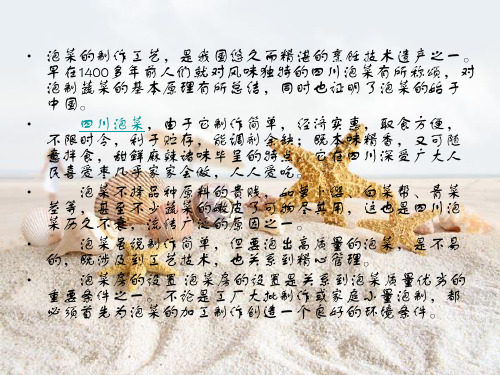 • 泡菜的制作工艺，是我国悠久而精湛的烹饪技术遗产之一。
早在1400多年前人们就对风味独特的四川泡菜有所称颂，对
泡制蔬菜的基本原理有所总结，同时也证明了泡菜的始于
中国。
• 四川泡菜，由于它制作简单，经济实惠，取食方便，
不限时令，利于贮存，能调剂余缺；既本味精香，又可随
意拌食，甜鲜麻辣诸味毕呈的特点，它在四川深爱广大人
民喜爱率几乎家家会做，人人爱吃
• 泡菜不择品种原料的贵贱，如萝卜缨、白菜帮、青菜
茎等，甚至不少蔬菜的嫩皮了可物尽其用，这也是四川泡
菜历久不衰，流传广泛的原因之一。
• 泡菜虽说制作简单，但要泡出高质量的泡菜，是不易
的，既涉及到工艺技术，也关系到精心管理。
• 泡菜房的设置 泡菜房的设置是关系到泡菜质量优劣的
重要条件之一。不论是工厂大批制作或家庭小量泡制，都
必须首先为泡菜的加工制作创造一个良好的环境条件。